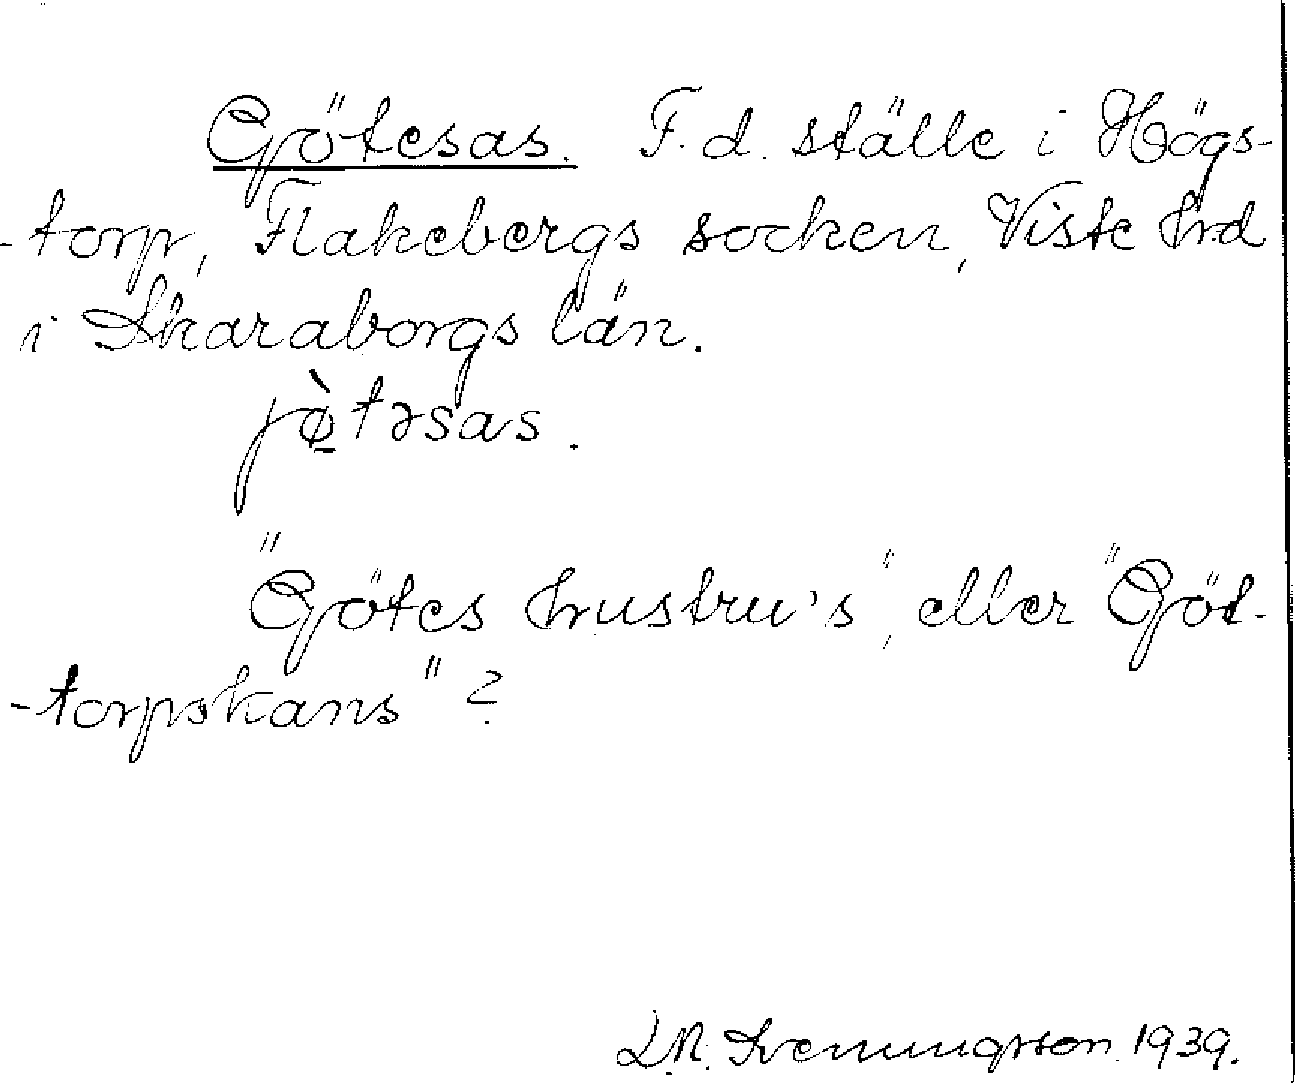 Götesas. F.d. ställe i Högs-
-torp, Flakebergs socken, Viste hrd
i Skaraborgs län.
jø̀təsas.
"Götes hustru's", eller "Göt-
-torpskans"?
1939.